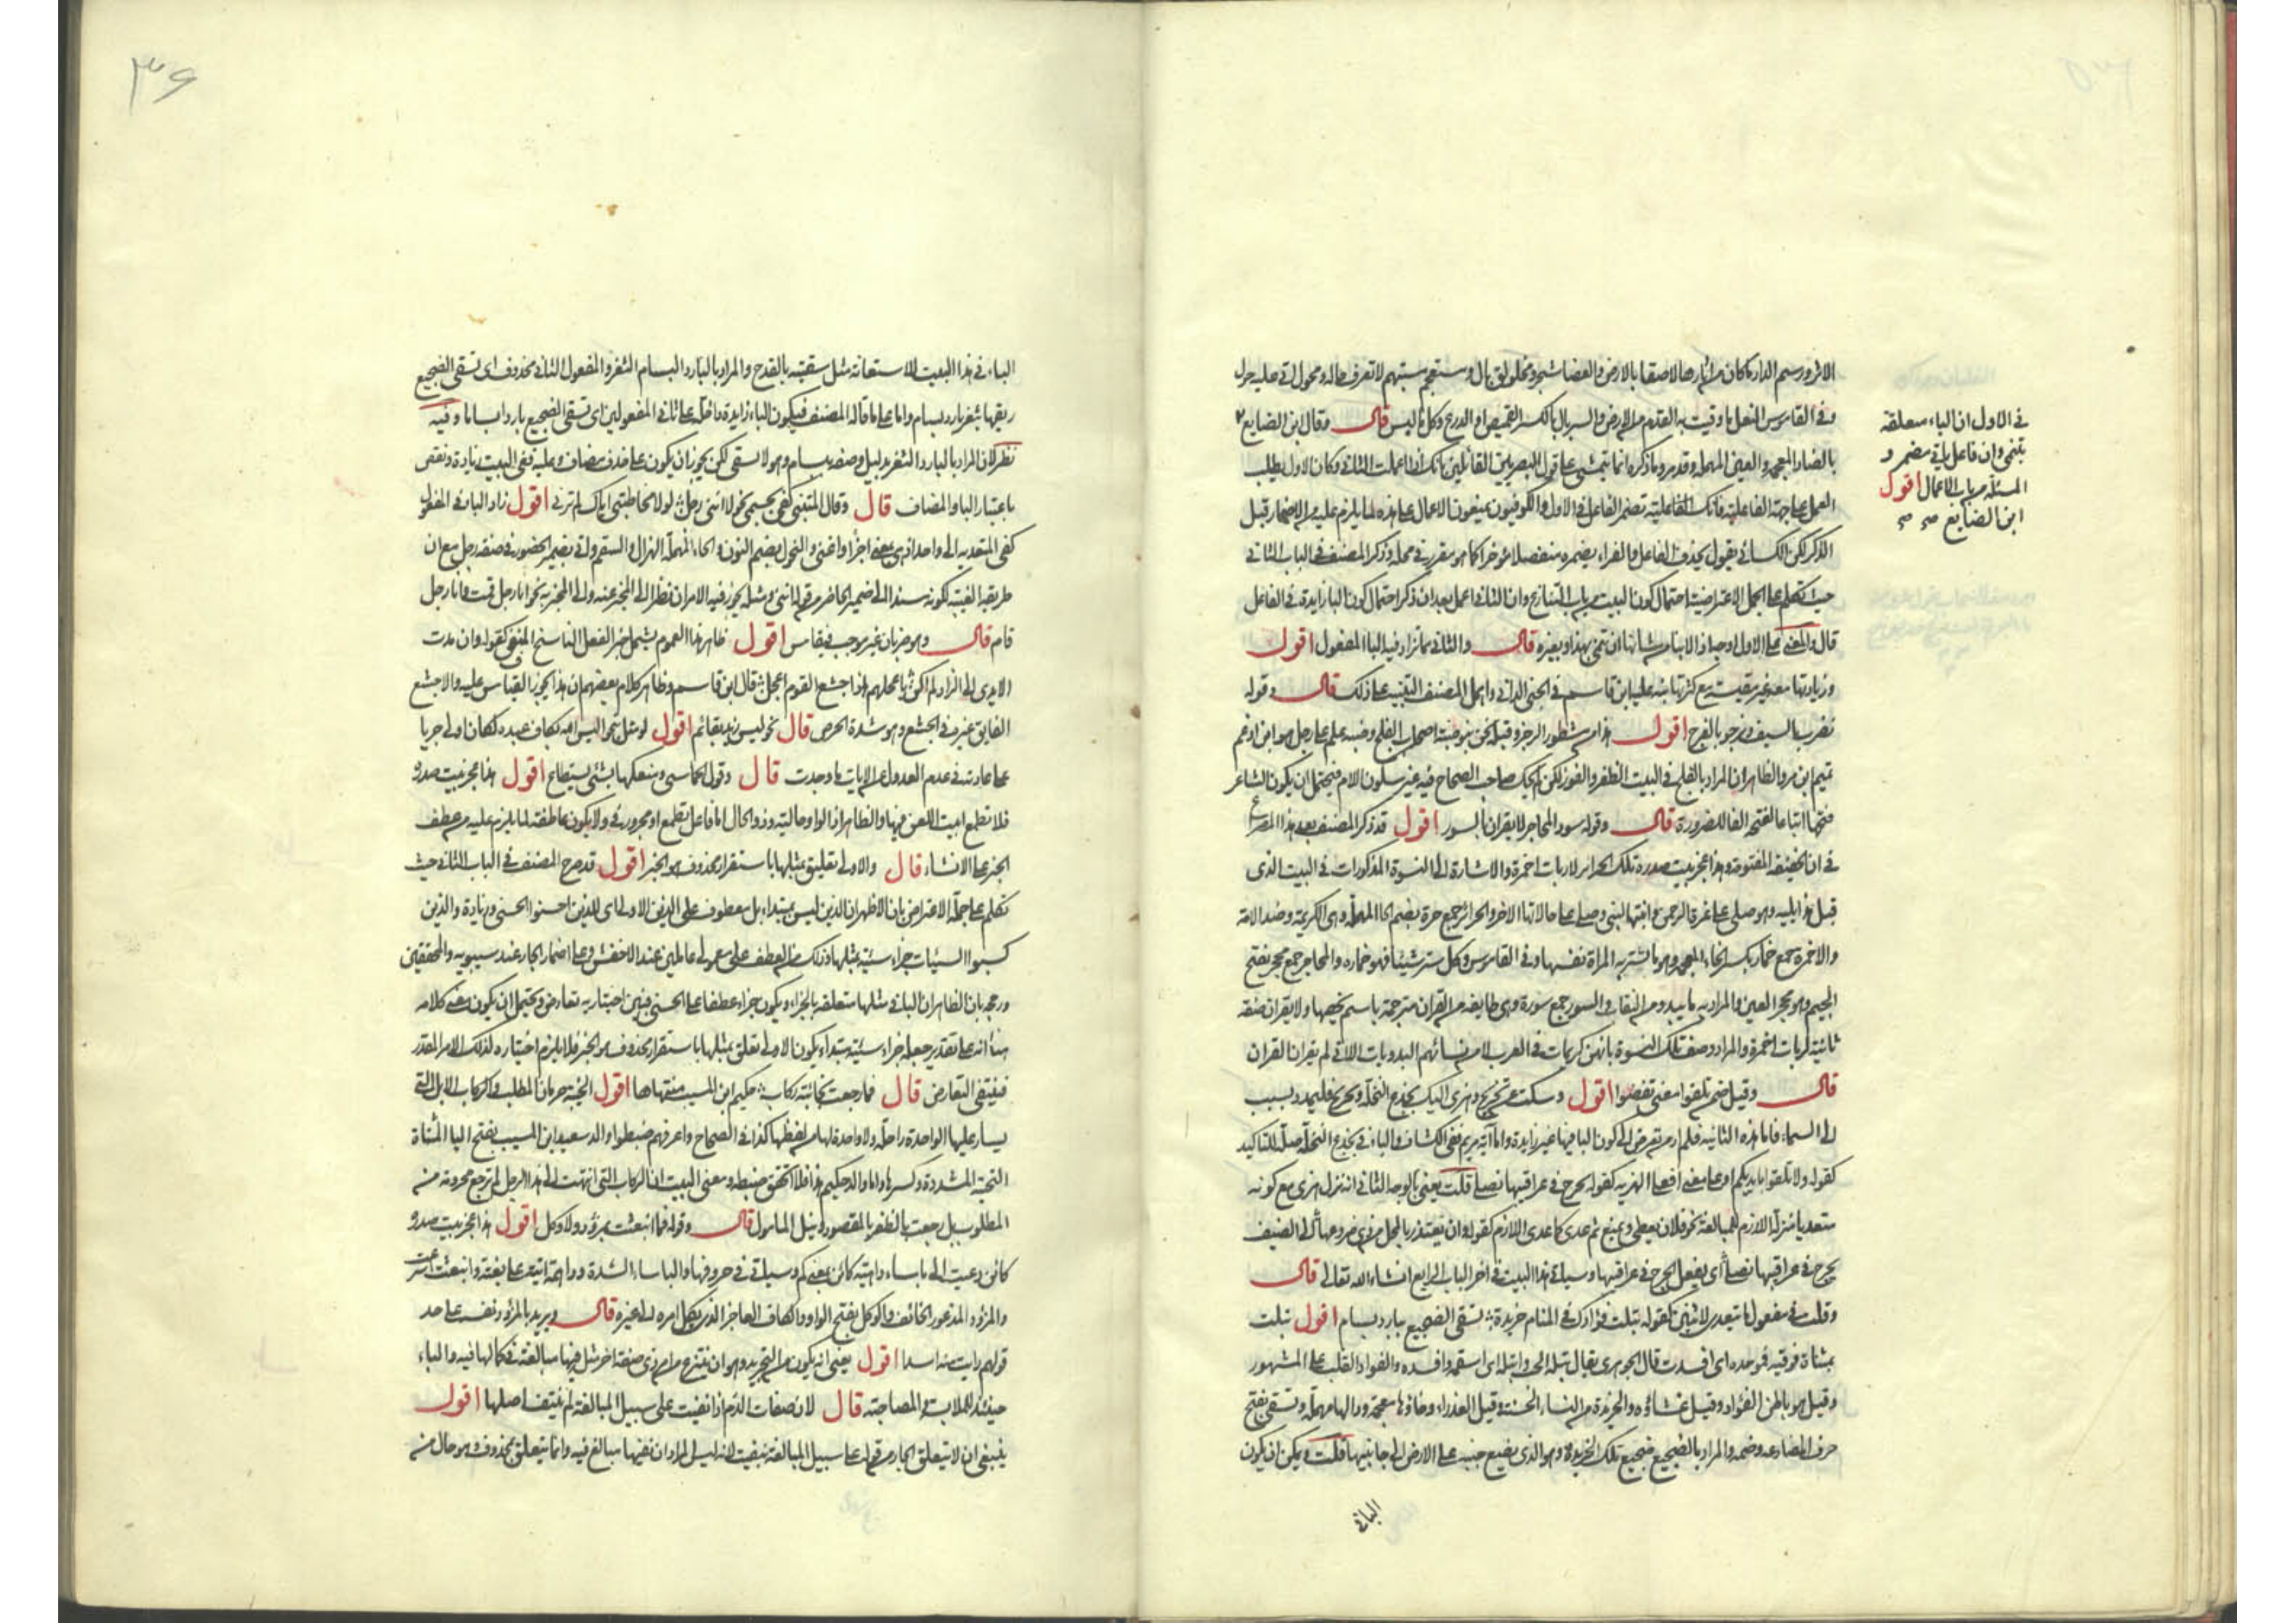 الاثر ورسم الدار ما كان من آثارها لاصقا بالارض والغضا شجر ومخلولق بال ومستعجم مستبهم لا تعرف حاله ومحول اتى عليه حول
وفى القاموس النعل ما وقيت به القدم من الارض والسربال بالكسر القميص او الدرع وكل ما لبس قال وقال ابن الضايع
بالضاد المعجمة والعين المهملة وقد مر وما ذكره انما يتمشى على قول البصريين القائلين بانك اذا اعملت الثانى وكان الاول يطلب
العمل على جهة الفاعلية فانك تضمر الفاعل فى الاول والكوفيون يمنعون الاعمال على هذه لما يلزم عليه من الاضمار قبل
الذكر لكن الكسائى يقول بحذف الفاعل والفراء يضمره منفصلا مؤخرا كما هو مقرر فى محله وذكر المصنف فى الباب الثانى
حيث تكلم على الجمل الاعتراضية احتمال كون البيت من باب التنازع وان الثانى اعمل بعد ان ذكر احتمال كون الباء زايدة فى الفاعل
قال والمعنى على الاول اوجه اذ الانباء من شانها ان تنمى بهذا وبغيره قال والثانى مما تزاد فيه الباء المفعول اقول
وزيادتها معه غير مقيسة مع كثرتها نبه عليه ابن قاسم فى الجنى الدانى واهمل المصنف التنبيه على ذلك قال وقوله
نضرب بالسيف ونرجو بالفرج اقول هذا من مشطور الرجز وقبله نحن بنو ضبة اصحاب الفلج وضبة علم على رجل هو ابن اد عم
تميم ابن مر والظاهر ان المراد بالفلج فى البيت الظفر والفوز لكن لم يحك صاحب الصحاح فيه غير سكون اللام فيحتمل ان يكون الشاعر
فتحها اتباعا لفتحة الفاء للضرورة قال وقوله سود المحاجر لا يقرأن بالسور اقول قد ذكر المصنف بعد هذا المصراع
فى ان الخفيفة المفتوحة وهذا عجز بيت صدره تلك الحرائر لا ربات اخمرة والاشارة الى النسوة المذكورات فى البيت الذى
قبل هذا يليه وهو صلى على عزة الرحمن وابنتها لبنى وصلى على جاراتها الاخر والحرائر جمع حرة بضم الحاء المهملة وهى الكريمة وضد الامة
والاخمرة جمع خمار بكسر الخاء المعجمة وهو ما تستر به المراة نفسها وفى القاموس وكل ستر شيئا فهو خماره والمحاجر جمع محجر بفتح
الجيم وهو محجر العين والمراد به ما يبدو من النقاب والسور جمع سورة وهى طايفة من القران مترجمة باسم يخصها ولا يقران صفة
ثانية لربات اخمرة والمراد وصف تلك النسوة بانهن كريمات فى العرب لا من نسائهم البدويات اللاتى لم يقران القران
قال وقيل ضمن تلقوا معنى تفضوا اقول وسكت عن تخريج وهزى اليك بجذع النخلة وتخريج فليمدد بسبب
الى السماء فاما هذه الثانية فلم ار من تعرض الى كون الباء فيها غير زايدة واما آية مريم ففى الكشاف والباء فى بجذع النخلة صلة للتاكيد
كقوله ولا تلقوا بايديكم او على معنى افعلى الهز به كقوله يجرح فى عراقيبها نصلى قلت يعنى بالوجه الثانى انه نزل هزى مع كونه
متعديا منزلة اللازم للمبالغة نحو فلان يعطى ويمنع ثم عدى كما عدى اللازم كقوله وان تعتذر بالمحل من ذى ضروعها الى الضيف
يجرح فى عراقيبها نصلى اى يفعل الجرح فى عراقيبها وسياتى هذا البيت فى اخر الباب الرابع انشاء الله تعالى قال
وقلت فى مفعول ما يتعدى لاثنين كقوله تبلت فؤادك فى المنام خريدة تسقى الضجيع ببارد بسام اقول تبلت
بمثناة فوقية فموحدة اى افسدت قال الجوهرى يقال تبله الحب واتبله اى اسقمه وافسده والفواد القلب على المشهور
وقيل هو باطن الفؤاد وقيل غشاؤه والخريدة من النساء الحيية وقيل العذراء وخاؤها معجمة ودالها مهملة وتسقى بفتح
حرف المضارعة وضمه والمراد بالضجيع ضجيع تلك الخريدة وهو الذى يضع جنبه على الارض الى جانبها قلت ويمكن ان يكون
الباء فى
فى الاول ان الباء متعلقة
بتنمى وان فاعل ياتى مضمر و
المسئلة من باب الاعمال اقول
ابن الضايع صح صح
٣٦
الباء فى هذا البيت للاستعانة مثل سقيته بالقدح والمراد بالبارد البسام الثغر والمفعول الثانى محذوف اى تسقى الضجيع
ريقها بثغر بارد بسام واما على ما قاله المصنف فيكون الباء زايدة داخلة على ثانى المفعولين اى تسقى الضجيع باردا بساما وفيه
نظر لان المراد بالبارد الثغر بدليل وصفه ببسام وهو لا يسقى لكن يجوز ان يكون على حذف مضاف وعليه ففى البيت زيادة ونقص
باعتبار الباء والمضاف قال وقال المتنبى كفى بجسمى نحولا اننى رجل لولا مخاطبتى اياك لم ترنى اقول زاد الباء فى المفعول
كفى المتعدية الى واحد اذ هى بمعنى اجزأ واغنى والنحول بضم النون والحاء المهملة الهزال والسقم واتى بضمير الحضور فى صفة رجل مع ان
طريقه الغيبة لكونه مسندا الى ضمير الحاضر من قوله اننى ومثله يجوز فيه الامران نظرا الى المخبر عنه والى المخبر به نحو انا رجل قمت وانا رجل
قام قال وهو ضربان غير موجب فيقاس اقول ظاهر هذا العموم يشمل خبر الفعل الناسخ المنفى كقوله وان مدت
الايدى الى الزاد لم اكن باعجلهم اذ اجشع القوم اعجل قال ابن قاسم وظاهر كلام بعضهم ان هذا يجوز القياس عليه والاجشع
الفايق غيره فى الجشع وهو شدة الحرص قال نحو ليس زيد بقائم اقول لو مثل بنحو اليس الله بكاف عبده لكان اولى جريا
على عادته فى عدم العدول عن الايات ما وجدت قال وقول الحماسى ومنعكها بشئ يستطاع اقول هذا عجز بيت صدره
فلا تطمع ابيت اللعن فيها والظاهر ان الواو حالية وذو الحال اما فاعل تطمع او مجرور فى ولا يكون عاطفة لما يلزم عليه من عطف
الخبر على الانشاء قال والاولى تعليق بمثلها باستقرار محذوف هو الخبر اقول قد صرح المصنف فى الباب الثانى حيث
تكلم على جملة الاعتراض بان الاظهر ان الذين ليس بمبتداء بل معطوف على الذين الاولى اى للذين احسنوا الحسنى وزيادة والذين
كسبوا السيئات جزاء سيئة بمثلها وذلك من العطف على معمولى عاملين عند الاخفش وعلى اضمار الجار عند سيبويه والمحققين
ورجحه بان الظاهر ان الباء فى بمثلها متعلقة بالجزاء ويكون جزاء عطفا على الحسنى فبين اختياريه تعارض ويحتمل ان يكون معنى كلامه
هنا انه على تقدير جعل جزاء سيئة مبتداء يكون الاولى تعلق بمثلها باستقرار محذوف هو الخبر فلا يلزم اختياره لذلك الامر المقدر
فينتفى التعارض قال فما رجعت بخائبة ركاب حكيم ابن المسيب منتهاها اقول الخيبة حرمان المطلب والركاب الابل التى
يسار عليها الواحدة راحلة ولا واحدة لها من لفظها كذا فى الصحاح واعرفهم ضبطوا والد سعيد ابن المسيب بفتح الياء المثناة
التحتية المشددة وكسرها واما والد حكيم هذا فلا اتحقق ضبطه ومعنى البيت ان الركاب التى انتهت الى هذا الرجل لم ترجع محرومة من
المطلوب بل رجعت بالظفر بالمقصود ونيل المامول قال وقوله فما انبعثت بمزؤد ولا وكل اقول هذا عجز بيت صدره
كائن دعيت الى باساء داهمة كائن بمعنى كم وسياتى فى حروفها والباساء الشدة وداهمة اتية على بغتة وانبعثت اسرعت
والمزؤد المذعور الخائف والوكل بفتح الواو والكاف العاجز الذى يكل امره الى غيره قال ويريد بالمزؤد نفسه على حد
قولهم رايت منه اسدا اقول يعنى انه يكون من التجريد وهو ان ينتزع من امر ذى صفة اخر مثل فيها مبالغة فى كمالها فيه والباء
حينئذ للملابسة والمصاحبة قال لان صفات الذم اذا نفيت على سبيل المبالغة لم ينتف اصلها اقول
ينبغى ان لا يتعلق الجار من قوله على سبيل المبالغة بنفيت لانه ليس المراد ان نفيها مبالغ فيه وانما يتعلق بمحذوف هو حال من